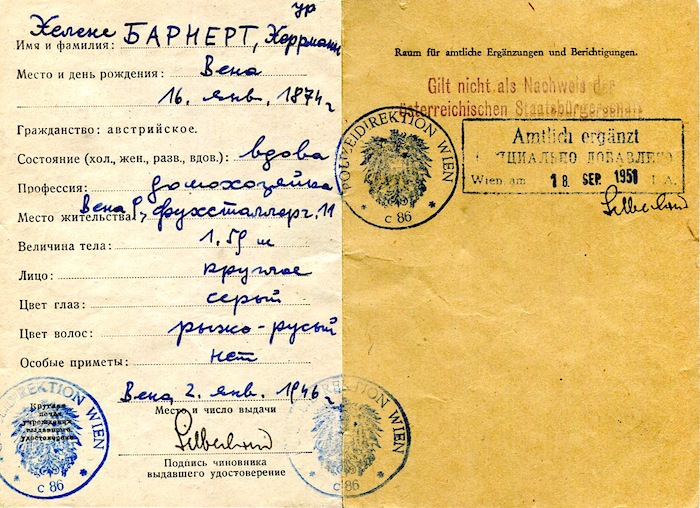 ур
Имя и фамилия: Хелене БАРНЕРТ, Херрманн
Место и день рождения: Вена
16. янв. 1874 г
Гражданство: австрийское.
Состояние (хол., жен., разв., вдов.): вдова
Профессия: домохозяйка
Место жительства: Вена 9, Фухсталлерг. 11
Величина тела: 1.59 м
Лицо: круглое
Цвет глаз: серый
Цвет волос: рыжо-русый
Особые приметы: нет
Вена, 2. янв. 1946 г
Место и число выдачи
Круглая
печать
учреждения
выдавшего
удостоверение
DIREKTION WIEN
* C 86 *
Silberland
Подпись чиновника
выдавшего удостоверение
DIREKTION WIEN
C 86 *
Raum für amtliche Ergänzungen und Berichtigungen.
Gilt nicht als Nachweis der
österreichischen Staatsbürgerschaft
POLIZEIDIREKTION WIEN
* C 86 *
Amtlich ergänzt
ОФИЦИАЛЬНО ДОБАВЛЕНО
Wien, am 18. SEP. 1951 I.A.
Silberland